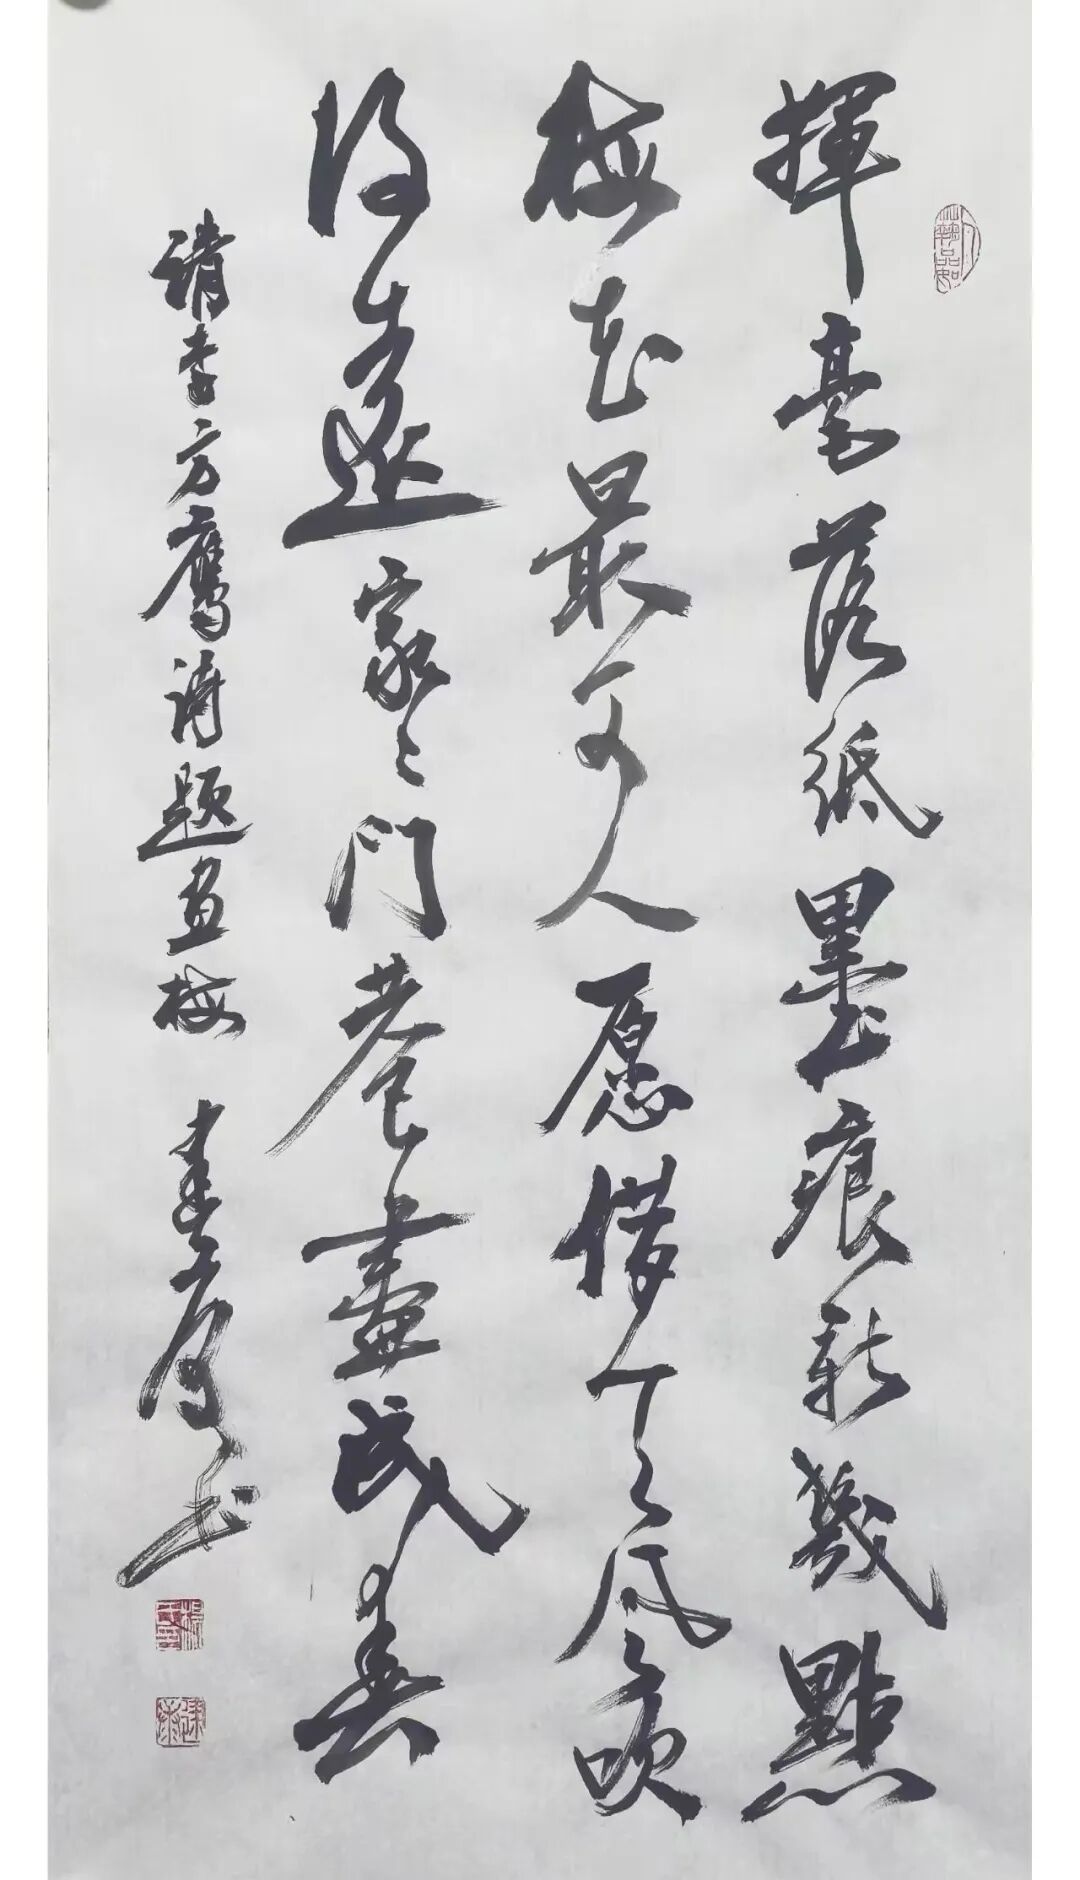 揮毫落紙墨痕新幾點
梅花最可人愿借天风吹
得遠家々门巷盡成春
清李方鷹诗题画梅 书